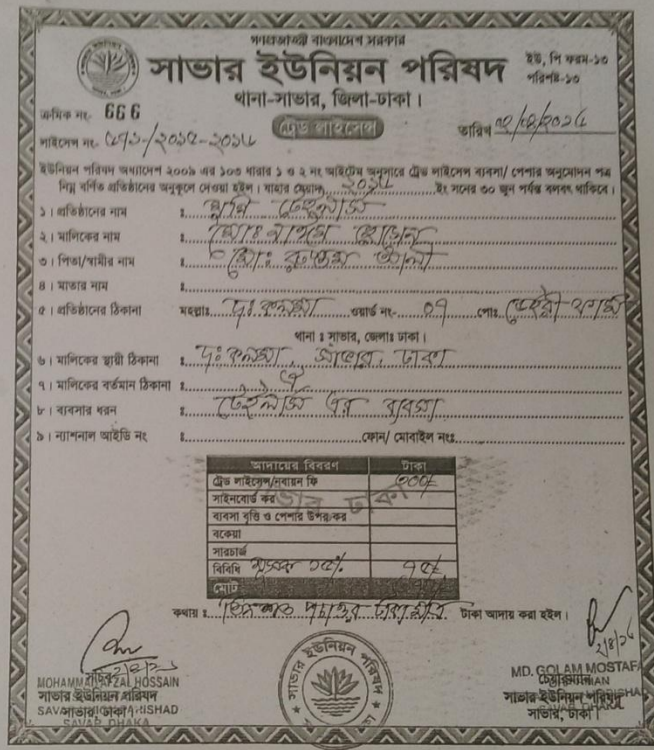 গণপ্রজাতন্ত্রী বাংলাদেশ সরকার
সাভার ইউনিয়ন পরিষদ
ইউ, পি ফরম-১০
পরিশিষ্ট-১০
থানা-সাভার, জিলা-ঢাকা।
ক্রমিক নং- 666
ট্রেড লাইসেন্স
তারিখ
লাইসেন্স নং-
ইউনিয়ন পরিষদ অধ্যাদেশ ২০০৯ এর ১০৩ ধারার ১ ও ২ নং আইটেম অনুসারে ট্রেড লাইসেন্স ব্যবসা/ পেশার অনুমোদন পত্র
নিম্ন বর্ণিত প্রতিষ্ঠানের অনুকূলে দেওয়া হইল। যাহার মেয়াদ ইং সনের ৩০ জুন পর্যন্ত বলবৎ থাকিবে।
১। প্রতিষ্ঠানের নাম ঃ টেইলার্স
২। মালিকের নাম ঃ মোঃ হোসেন
৩। পিতা/স্বামীর নাম ঃ মোঃ রুস্তম আলী
৪। মাতার নাম ঃ
৫। প্রতিষ্ঠানের ঠিকানা মহল্লাঃ দঃ কলমা ওয়ার্ড নং- ০৭ পোঃ ডেইরী ফার্ম
থানা ঃ সাভার, জেলাঃ ঢাকা।
৬। মালিকের স্থায়ী ঠিকানা ঃ দঃ কলমা, সাভার, ঢাকা
৭। মালিকের বর্তমান ঠিকানা ঃ ঐ
৮। ব্যবসার ধরন ঃ টেইলার্স এর ব্যবসা
৯। ন্যাশনাল আইডি নং ঃ ফোন/ মোবাইল নংঃ
আদায়ের বিবরণ টাকা
ট্রেড লাইসেন্স/নবায়ন ফি ৩০০/-
সাইনবোর্ড কর
ব্যবসা বৃত্তি ও পেশার উপর কর
বকেয়া
সারচার্জ
বিবিধি ১৫%
মোট
কথায় ঃ তিন শত টাকা আদায় করা হইল।
সচিব
MOHAMMAD AFZAL HOSSAIN
সাভার ইউনিয়ন পরিষদ
সাভার, ঢাকা।
SAVAR DHAKA
সাভার ইউনিয়ন পরিষদ
MD. GOLAM MOSTAFA
চেয়ারম্যান
সাভার ইউনিয়ন পরিষদ
সাভার, ঢাকা।